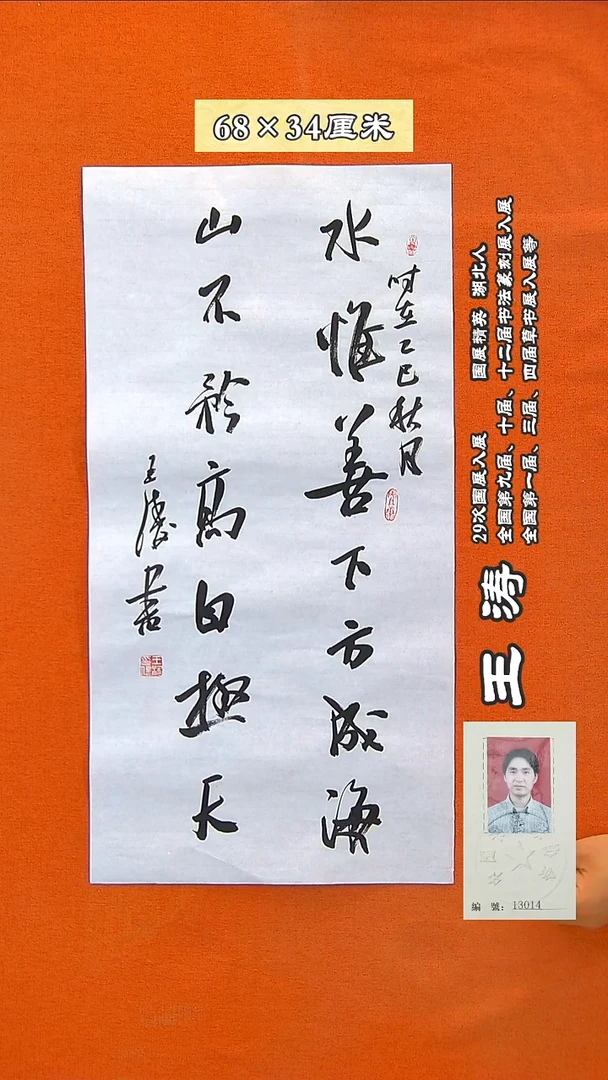 68×34厘米
时在乙巳秋月
水惟善下方成海
山不矜高自極天
王涛書
29次国展入展 国展精英 湖北人
全国第九届、十届、十二届书法篆刻展入展
全国第一届、三届、四届草书展入展等
王涛
編 號: 13014